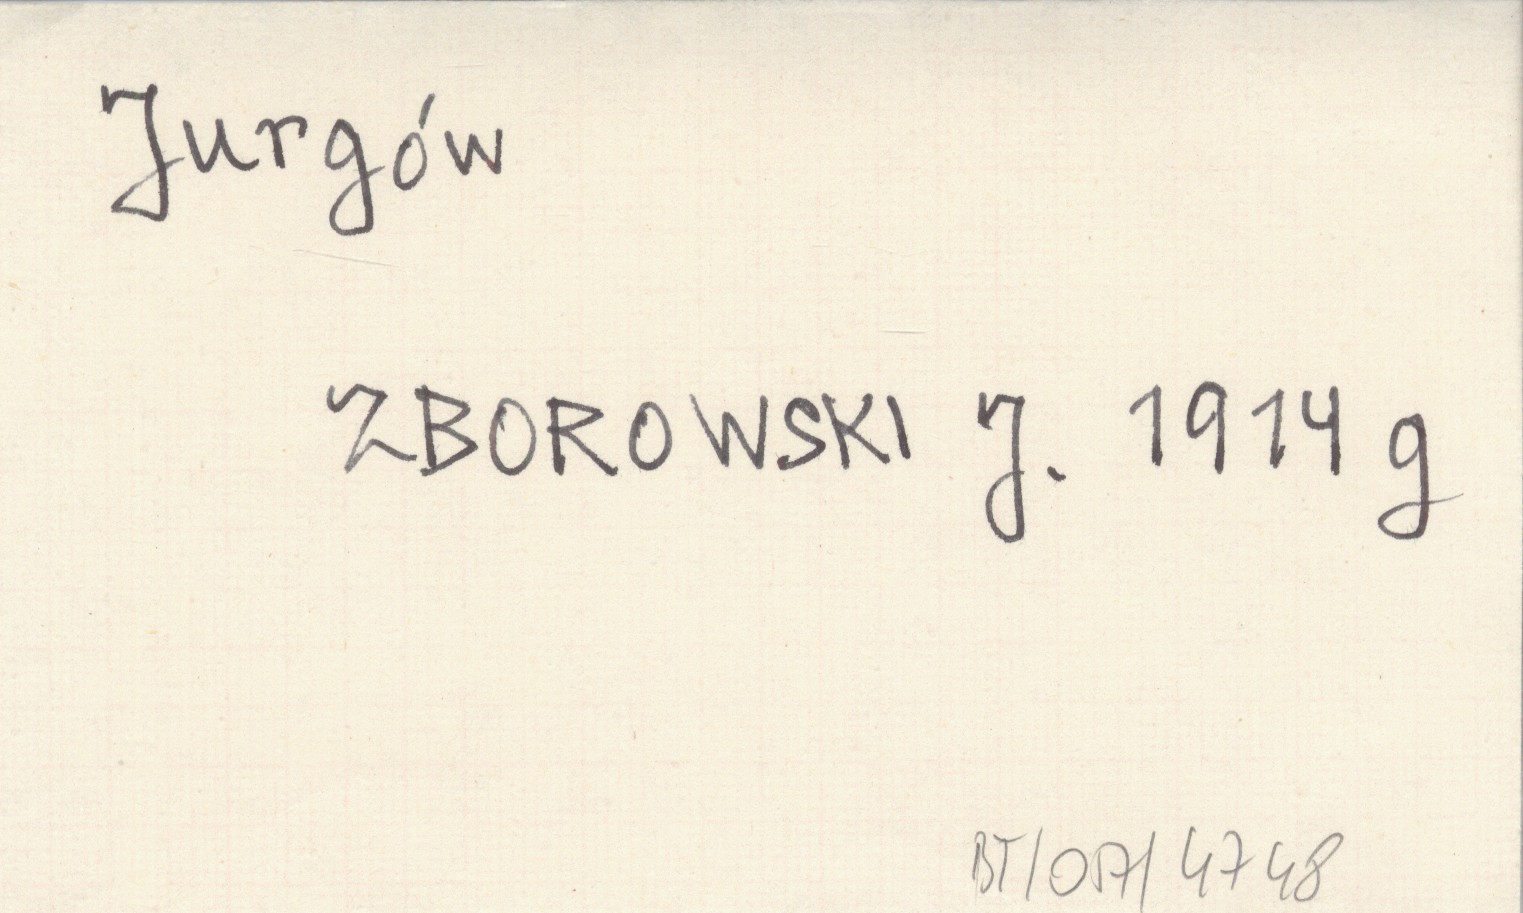 Jurgów
ZBOROWSKI J. 1914 g
BT/057/4748